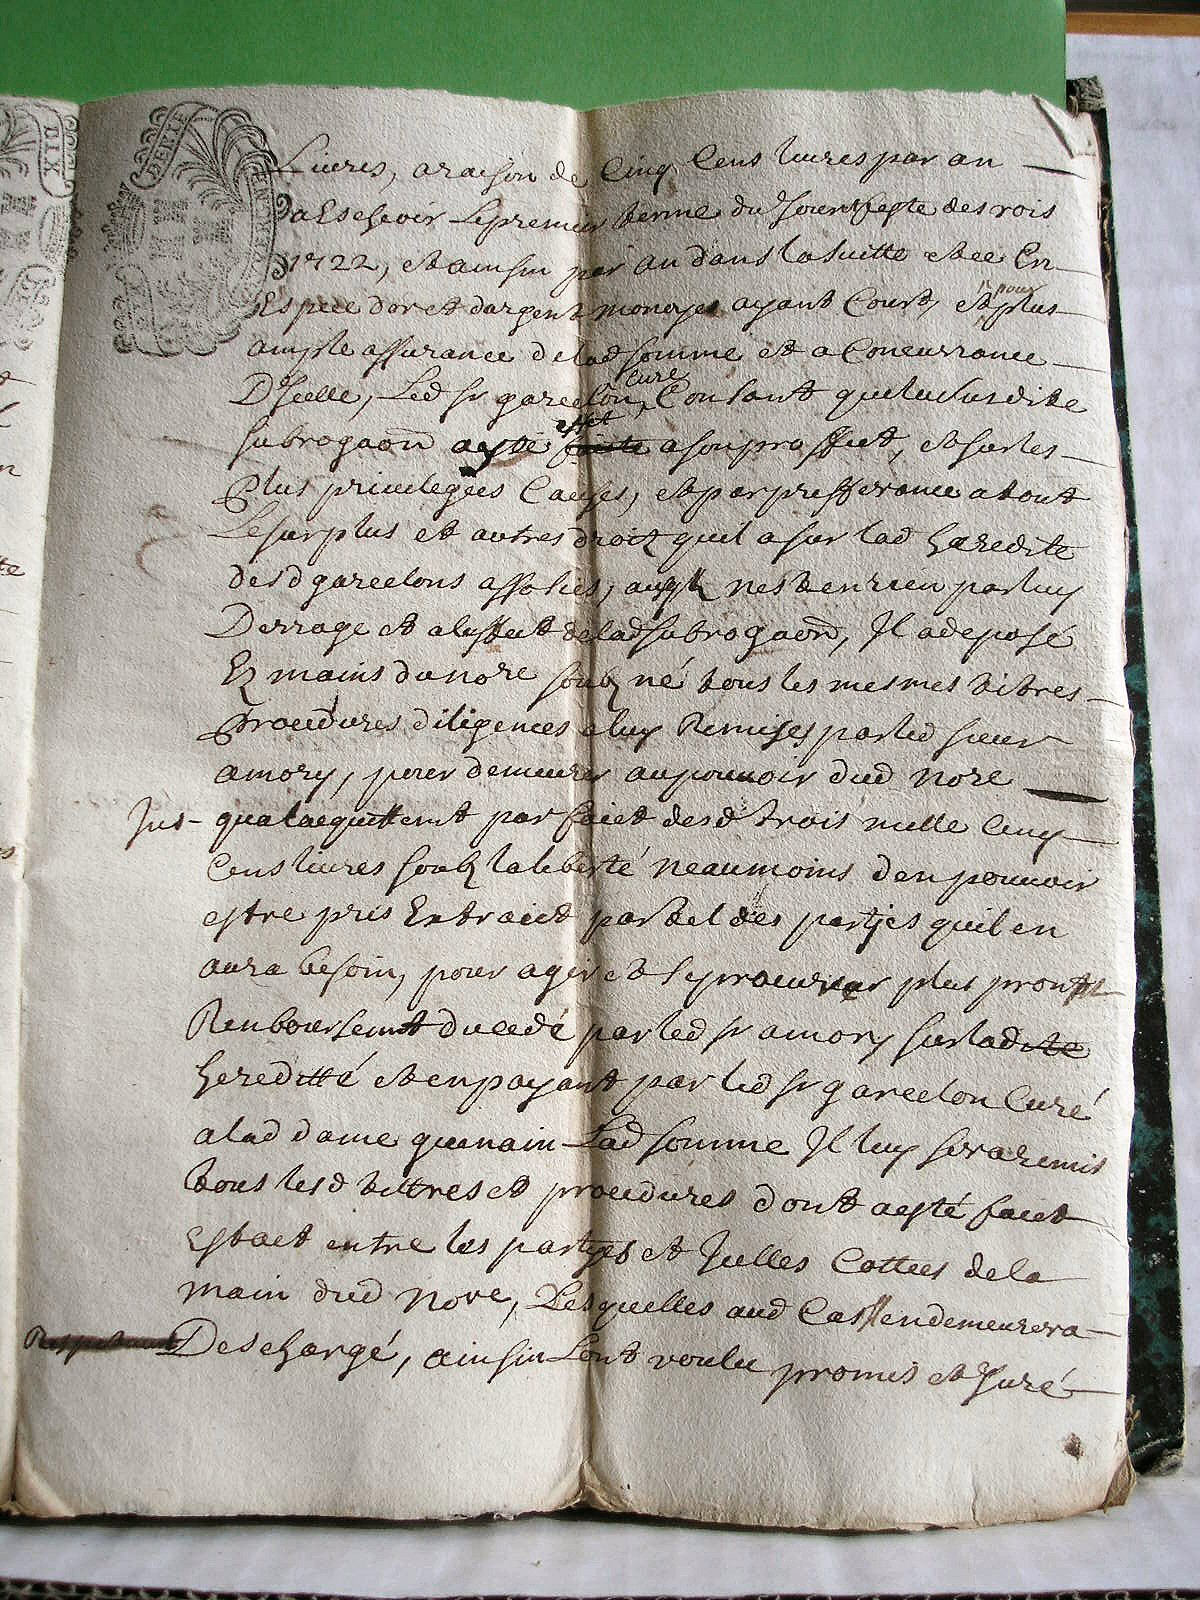 DIX
DENIE
Liures, a raison de Cinq Cens liures par an
a Escheoir Le premier terme du Jour et feste des rois
1722, et ainsin par an dans la suitte et ce En
Espece dor et dargent monoyes ayant Court, et pour plus
ample assurance de lad somme et a Concurrance
DJcelle, Led sr garcelon Curé, Consant que la susdite
subrogaon aye esté effet faite a son proffict, et sur les
Plus priuilegées Causes, et par prefferance a tout
Le surplus et autres droitz quil a sur lad heredite
desd garcelons nest en rien par luy
Derrogé et a leffect de lad subrogaon, Jl a deposé
Ez mains du nore soubzné tous les mesmes tiltres
Procedures diligences a luy Remises par led sieur
amory, pour demeurer au pouuoir dud nore
Jusqua lacquittemt parfaict desd trois mille Cinq
Cens liures soubz la liberté neaumoins den pouuoir
estre pris Extraict par tel des partjes quil en
aura besoin, pour agir et se procurer plus promt
Renboursemt du cedé par led sr amory sur ladite
hereditté et en payant par led sr garcelon Curé
a lad dame guenain Lad somme Jl luy sera remis
tous lesd tiltres et procedures dont a esté faict
Estact entre les partjes et Jcelles Cottees de la
main dud nore, Lesquelles aud Cas Jl en demeurera
Deschargé, ainsin Lont voulu promis et Juré